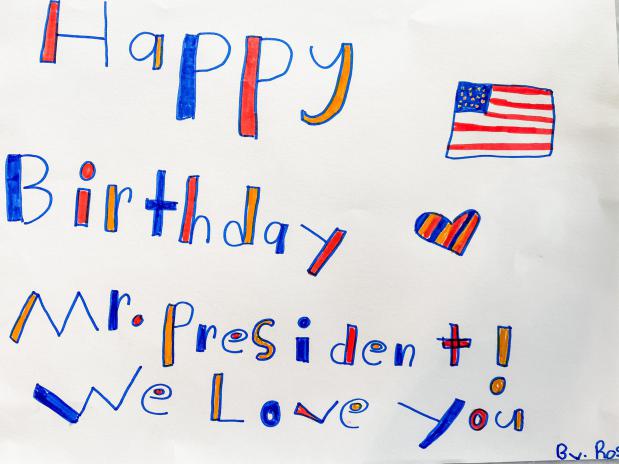 Happy
Birthday
Mr. President!
We Love you
By.